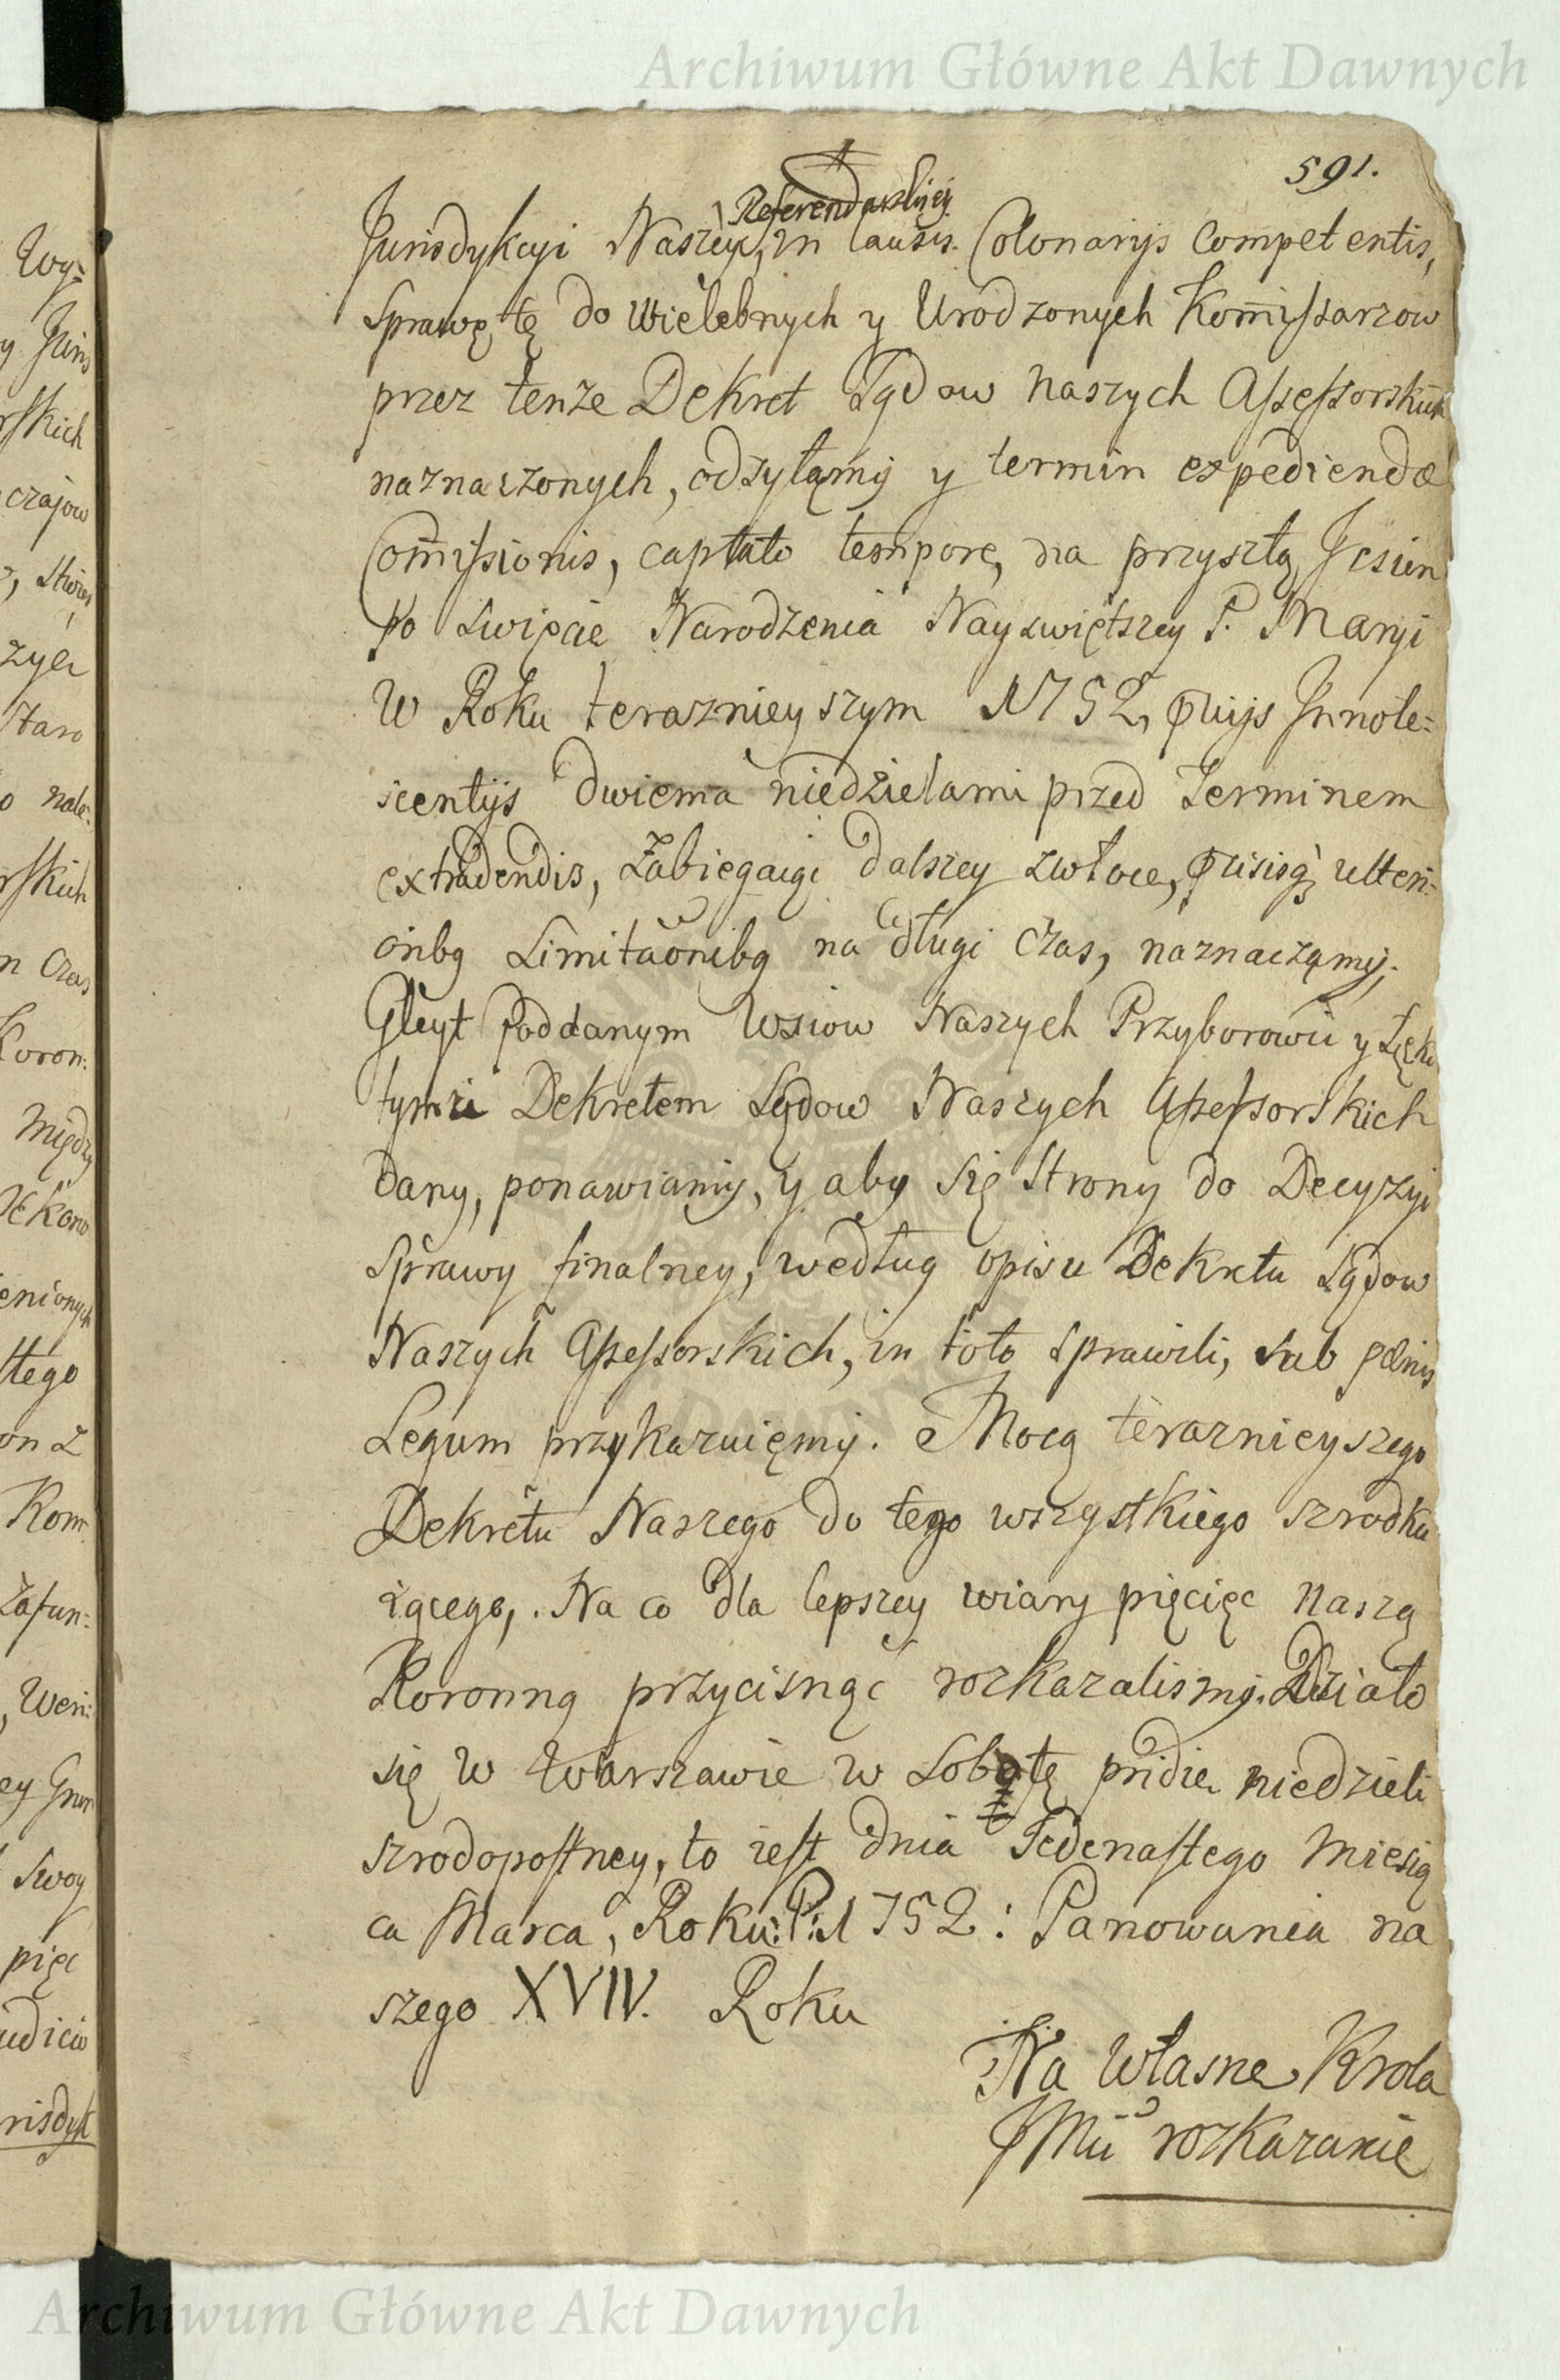 Archiwum Główne Akt Dawnych
591.
Referendarskiey
Jurisdykcyi Naszey, in Causis Colonarijs Competentis,
Sprawę tę do Wielebnych y Urodzonych Kom̃issarzow
przez tenże Dekret Sądow Naszych Assessorskich
naznaczonych, odsyłamy y termin expediendæ
Com̃issionis, captato tempore, na przyszłą Jesien
po Swięcie Narodzenia Nayswiętszey P. Maryi
w Roku teraznieyszym 1752,  Innote=
scentijs dwiema niedzielami przed Terminem
extradendis, Zabiegaiąc dalszey zwłoce, 
 na długi czas, naznaczamy.
Gleyt Poddanym Wsiow Naszych Przyborowu y Łęki
tymze Dekretem Sądow Naszych Assessorskich
dany, ponawiamy, y aby się Strony do Decyzyi
Sprawy finalney, według opisu Dekretu Sądow
Naszych Assessorskich, in toto sprawili, sub pœnis
Legum przykazuięmy. Mocą teraznieyszego
Dekretu Naszego do tego wszystkiego szrodku
iącego. Na co dla lepszey wiary pięcięc naszą
Koronną przycisnąc rozkazalismy. Działo
się w Warszawie w Sobotę pridie niedzieli
szrodopostney, to iest dnia Jedenastego Miesią
ca Marca, Roku P. 1752: Panowania na
szego XVIV. Roku
Na własne Krola
JMći rozkazanie
Archiwum Główne Akt Dawnych